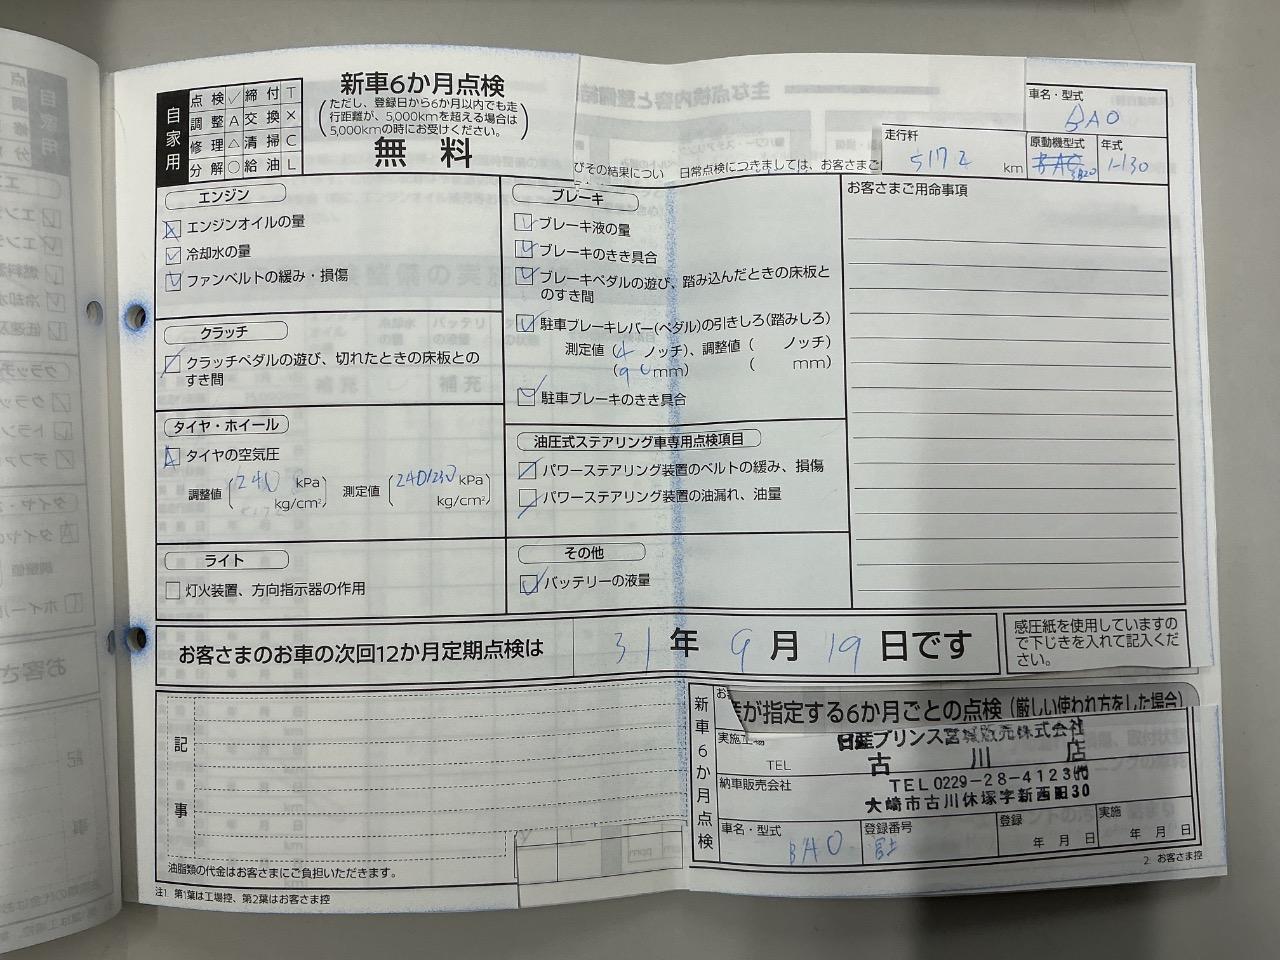 自家用
点検 ✓ 締付 T
調整 A 交換 ×
修理 △ 清掃 C
分解 ○ 給油 L
新車6か月点検
(ただし、登録日から6か月以内でも走
行距離が、5,000kmを超える場合は
5,000kmの時にお受けください。)
無料
びその結果につい 日常点検につきましては、お客さまご
車名・型式
BAO
走行粁
5172 km
原動機型式
年式
1-130
エンジン
エンジンオイルの量
冷却水の量
ファンベルトの緩み・損傷
クラッチ
クラッチペダルの遊び、切れたときの床板との
すき間
タイヤ・ホイール
タイヤの空気圧
調整値 (240 kPa kg/cm²) 測定値 (240/230 kPa kg/cm²)
ライト
灯火装置、方向指示器の作用
ブレーキ
ブレーキ液の量
ブレーキのきき具合
ブレーキペダルの遊び、踏み込んだときの床板と
のすき間
駐車ブレーキレバー(ペダル)の引きしろ(踏みしろ)
測定値 (4 ノッチ)、調整値 ( ノッチ)
(90mm) ( mm)
駐車ブレーキのきき具合
油圧式ステアリング車専用点検項目
パワーステアリング装置のベルトの緩み、損傷
パワーステアリング装置の油漏れ、油量
その他
バッテリーの液量
お客さまご用命事項
お客さまのお車の次回12か月定期点検は 31年 9月 19日です
感圧紙を使用していますの
で下じきを入れて記入くだ
さい。
記事
油脂類の代金はお客さまにご負担いただきます。
注1 第1葉は工場控、第2葉はお客さま控
新車6か月点検
が指定する6か月ごとの点検(厳しい使われ方をした場合)
実施工場
日産プリンス宮城販売株式会社
TEL
古川店
納車販売会社
TEL 0229-28-4123㈹
大崎市古川休塚字新西田30
車名・型式
BAO
登録番号
登録
年 月 日
実施
年 月 日
2 お客さま控